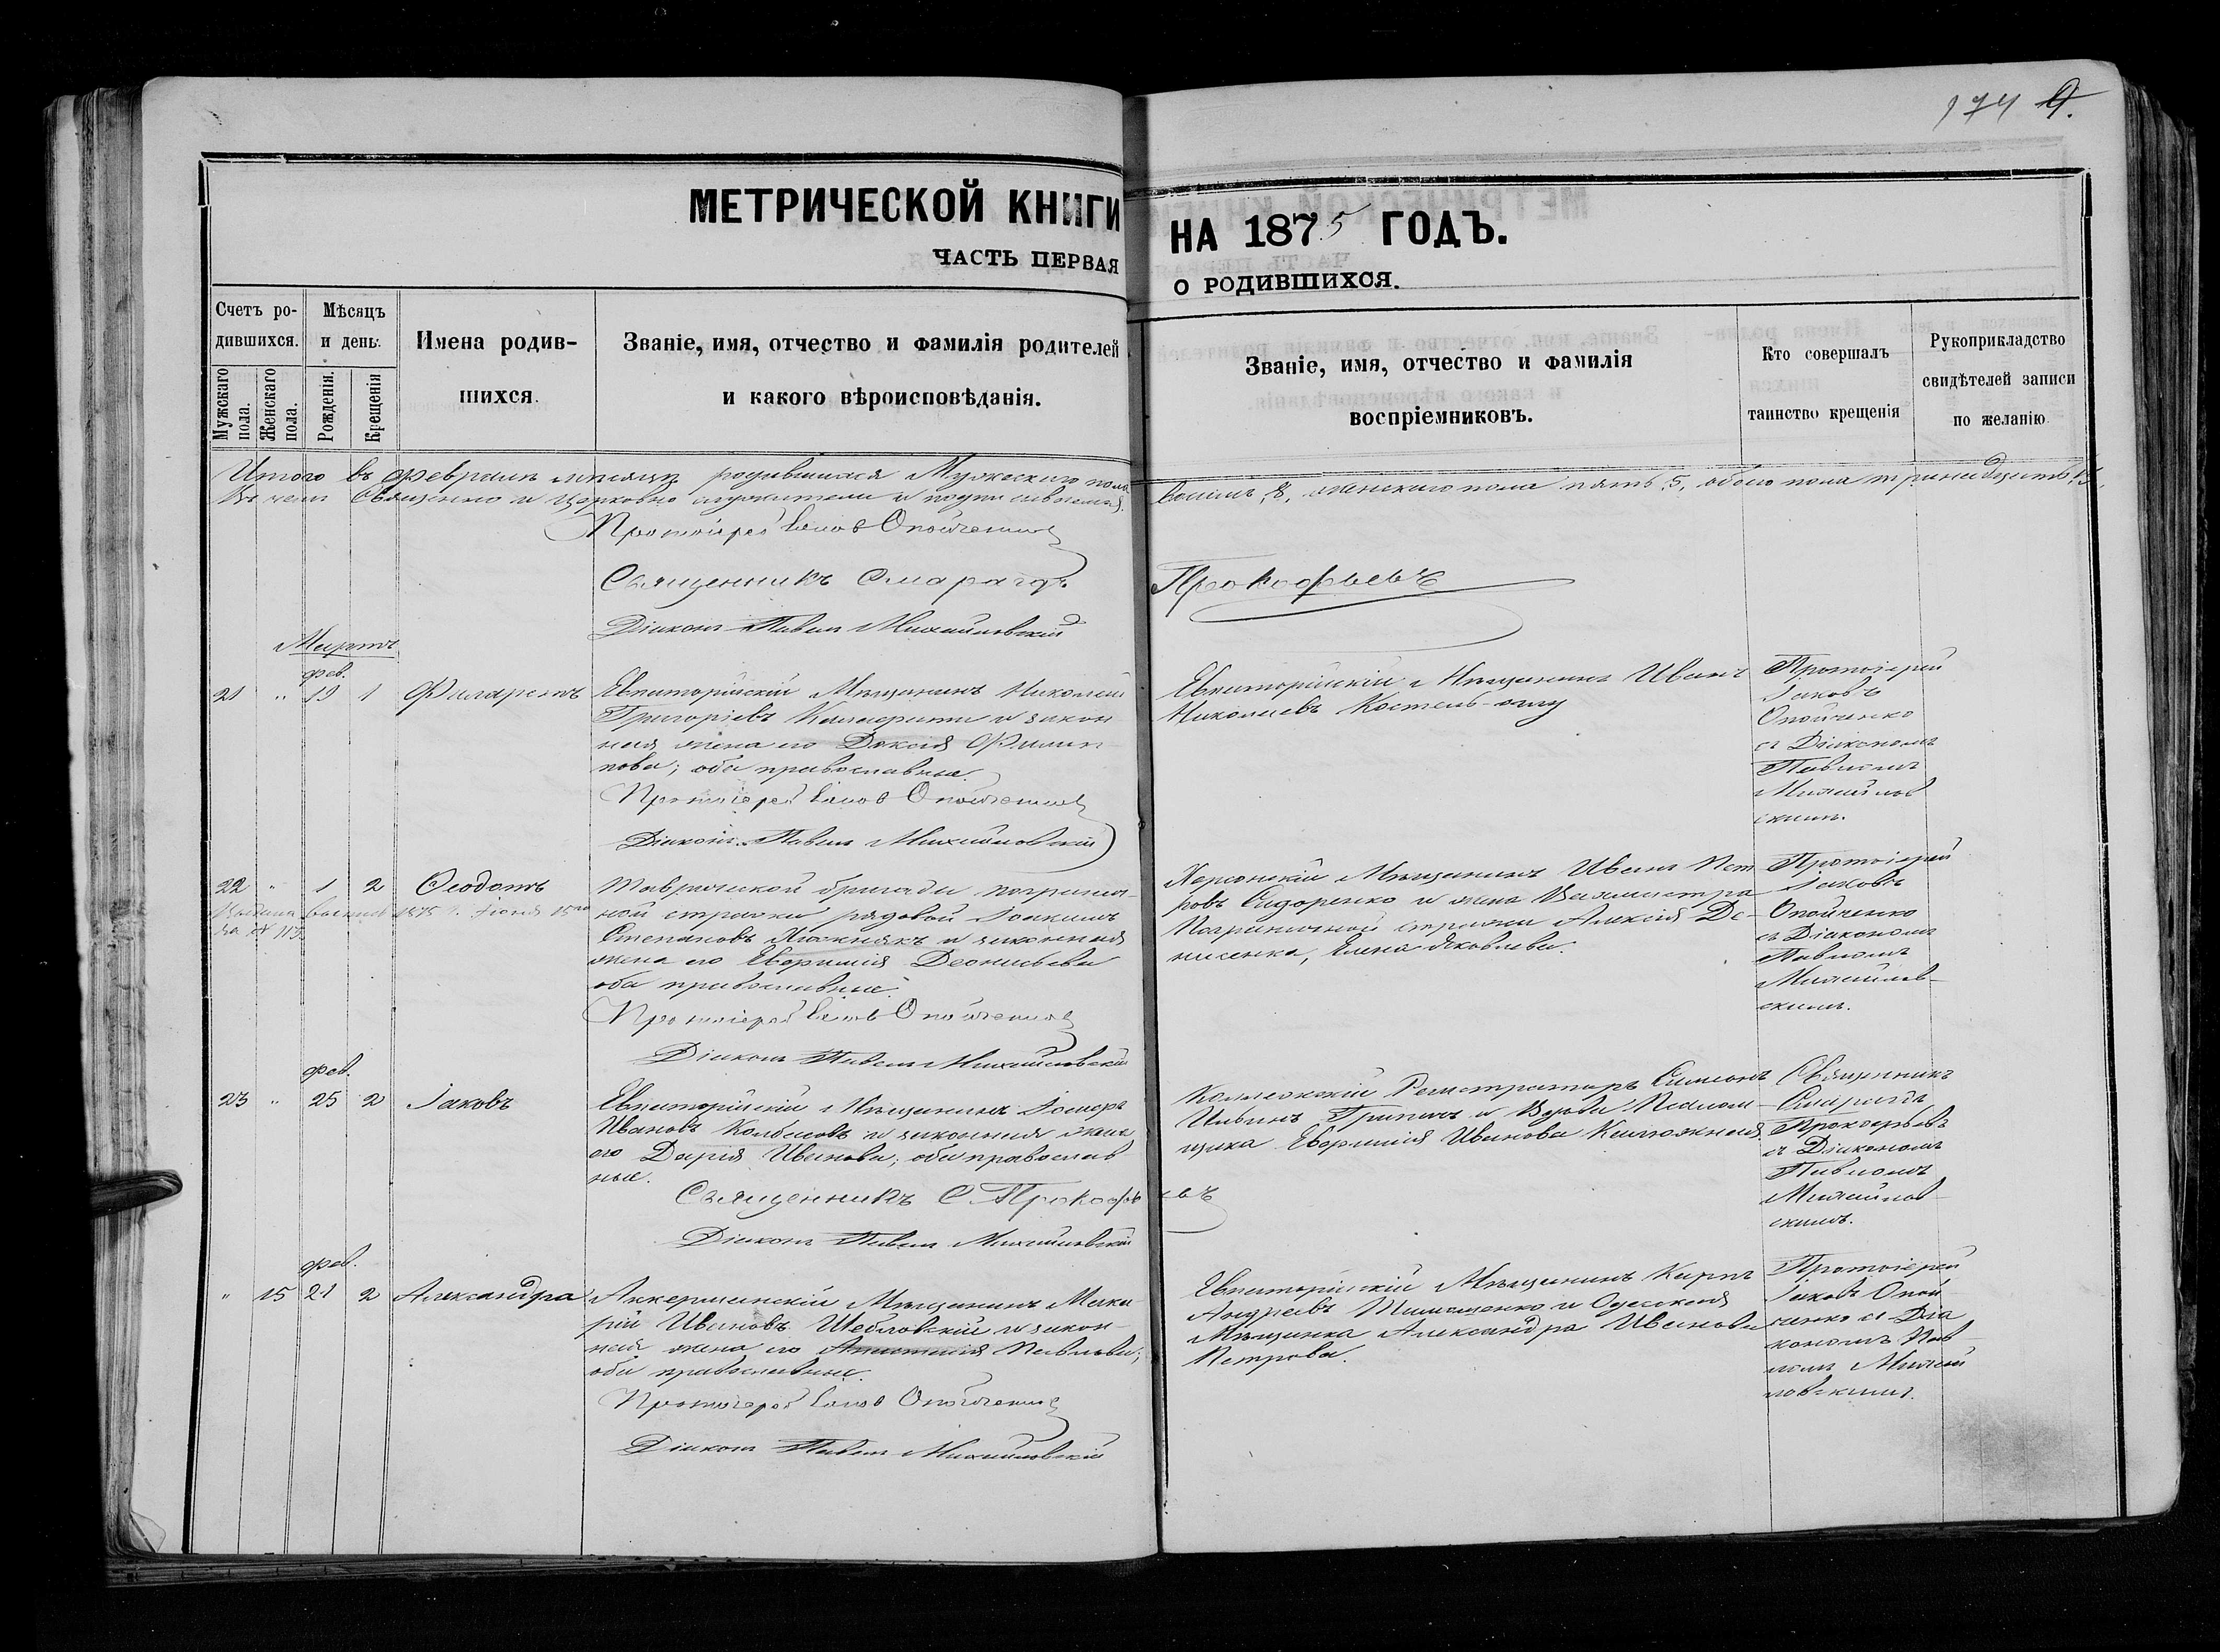 174 9.
МЕТРИЧЕСКОЙ КНИГИ НА 1875 ГОДЪ.
ЧАСТЬ ПЕРВАЯ О РОДИВШИХСЯ.
Счетъ ро-
дившихся.
Мужскаго пола.
Женскаго пола.
Мѣсяцъ
и день.
Рожденія.
Крещенія
Имена родив-
шихся.
Званіе, имя, отчество и фамилія родителей
и какого вѣроисповѣданія.
Званіе, имя, отчество и фамилія
воспріемниковъ.
Кто совершалъ
таинство крещенія
Рукоприкладство
свидѣтелей записи
по желанію
Итого въ Февралѣ мѣсяцѣ родившихся Мужескаго пола восемь, 8, женскаго пола пять, 5, обоего пола тринадцать, 13.
Въ чемъ Священно и Церковно служители и подписываемся.
Протоіерей Іаковъ Опойченко
Священникъ Смарагдъ Прокофьевъ
Діаконъ Павелъ Михайловскій
Мартъ
фев.
21 " 19 1 Филаретъ
Евпаторійскій Мѣщанинъ Николай
Григоріевъ и закон-
ная жена его Филип-
пова; оба православные.
Протоіерей Іаковъ Опойченко
Діаконъ Павелъ Михайловскій
Евпаторійскій Мѣщанинъ Иванъ
Николаевъ
Протоіерей
Іаковъ
Опойченко
съ Діакономъ
Павломъ
Михайлов
скимъ.
22 " 1 2 Ѳеодотъ
1875 г. Іюня 15
за № 113
Таврической бригады погранич-
ной стражи рядовой Іоакимъ
Степановъ и законная
жена его Евфимія
оба православные.
Протоіерей Іаковъ Опойченко
Діаконъ Павелъ Михайловскій
Херсонскій Мѣщанинъ Иванъ Пет
ровъ Сидоренко и жена Вахмистра
Пограничной стражи Алексія Де-
нисенка, Елена Яковлева.
Протоіерей
Іаковъ
Опойченко
съ Діакономъ
Павломъ
Михайлов-
скимъ.
фев.
23 " 25 2 Іаковъ
Евпаторійскій Мѣщанинъ
Ивановъ и законная жена
его Дарія Иванова; оба православ
ные.
Священникъ С. Прокофьевъ
Діаконъ Павелъ Михайловскій
Коллежскій Регистраторъ Симеонъ
Ильинъ и Вдова
Евфимія Иванова
Священникъ
Смарагдъ
Прокофьевъ
съ Діакономъ
Павломъ
Михайлов-
скимъ.
фев.
" 15 21 2 Александра
Аккерманскій Мѣщанинъ Мака
рій Ивановъ и закон-
ная жена его Павлова;
оба православные.
Протоіерей Іаковъ Опойченко
Діаконъ Павелъ Михайловскій
Евпаторійскій Мѣщанинъ Карпъ
Андреевъ и Одесская
Мѣщанка Александра Иванова
Петрова.
Протоіерей
Іаковъ Опой
ченко съ Діа
кономъ Пав-
ломъ Михай
ловскимъ.